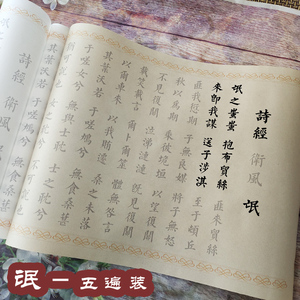 詩經 衛風 氓
氓之蚩蚩 抱布貿絲 匪來貿絲
來即我謀 送子涉淇 至于頓丘
匪我愆期 子無良媒 將子無怒
秋以爲期 乘彼垝垣 以望復關
不見復關 泣涕漣漣 既見復關
載笑載言 爾卜爾筮 體無咎言
以爾車來 以我賄遷 桑之未落
其葉沃若 于嗟鳩兮 無食桑葚
于嗟女兮
氓一五遍装